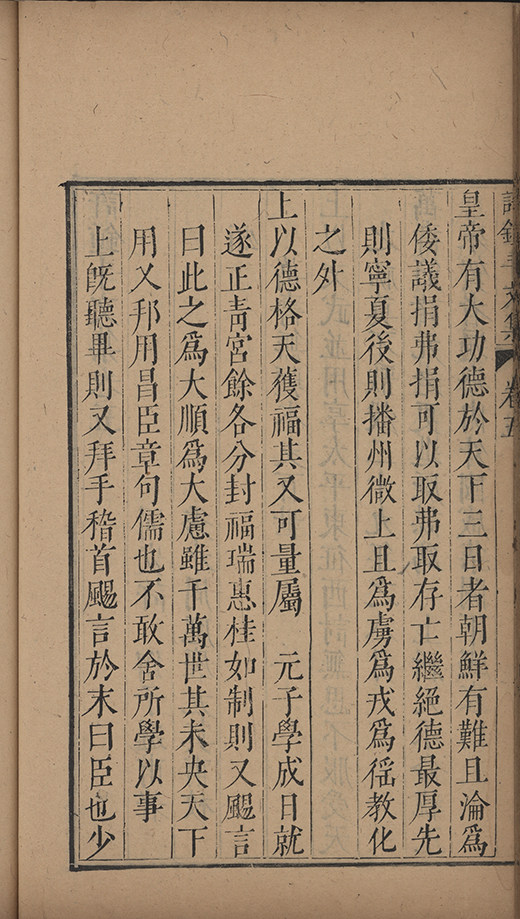 文集 卷五
皇帝有大功德於天下三曰者朝鮮有難且淪為
倭議捐弗捐可以取弗取存亡繼絕德最厚先
則寧夏後則播州微上且為虜為戎為徭教化
之外
上以德格天獲福其又可量屬 元子學成日就
遂正靑宮餘各分封福瑞惠桂如制則又颺言
曰此之為大順為大慮雖千萬世其未央天下
用乂邦用昌臣章句儒也不敢舍所學以事
上旣聽畢則又拜手稽首颺言於末曰臣也少